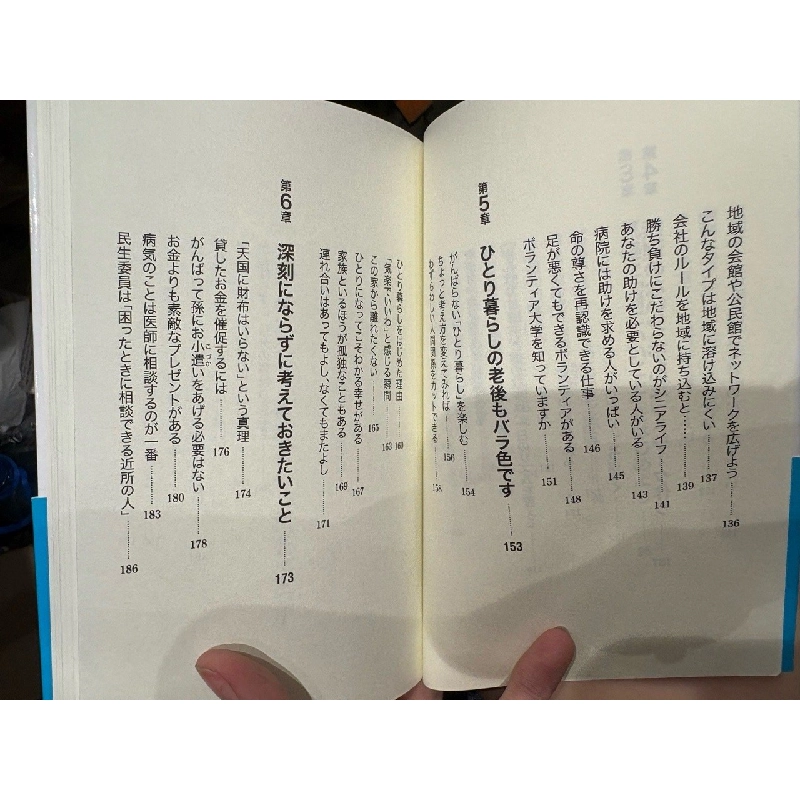 地域の会館や公民館でネットワークを広げよう………136
こんなタイプは地域に溶け込みにくい………137
会社のルールを地域に持ち込むと……………139
勝ち負けにこだわらないのがシニアライフ………141
あなたの助けを必要としている人がいる………143
病院には助けを求める人がいっぱい………145
命の尊さを再認識できる仕事………146
足が悪くてもできるボランティアがある………148
ボランティア大学を知っていますか………151
第5章 ひとり暮らしの老後もバラ色です………153
がんばらない「ひとり暮らし」を楽しむ………154
ちょっと考え方を変えてみれば………156
わずらわしい人間関係をカットできる………158
ひとり暮らしをはじめた理由………160
「気楽でいいわ」と感じる瞬間………163
この家から離れたくない………165
ひとりになってこそわかる幸せがある………167
家族といるほうが孤独なこともある………169
連れ合いはあってもよし、なくてもまたよし………171
第6章 深刻にならずに考えておきたいこと………173
「天国に財布はいらない」という真理………174
貸したお金を催促するには………176
がんばって孫にお小遣いをあげる必要はない………178
お金よりも素敵なプレゼントがある………180
病気のことは医師に相談するのが一番………183
民生委員は「困ったときに相談できる近所の人」………186